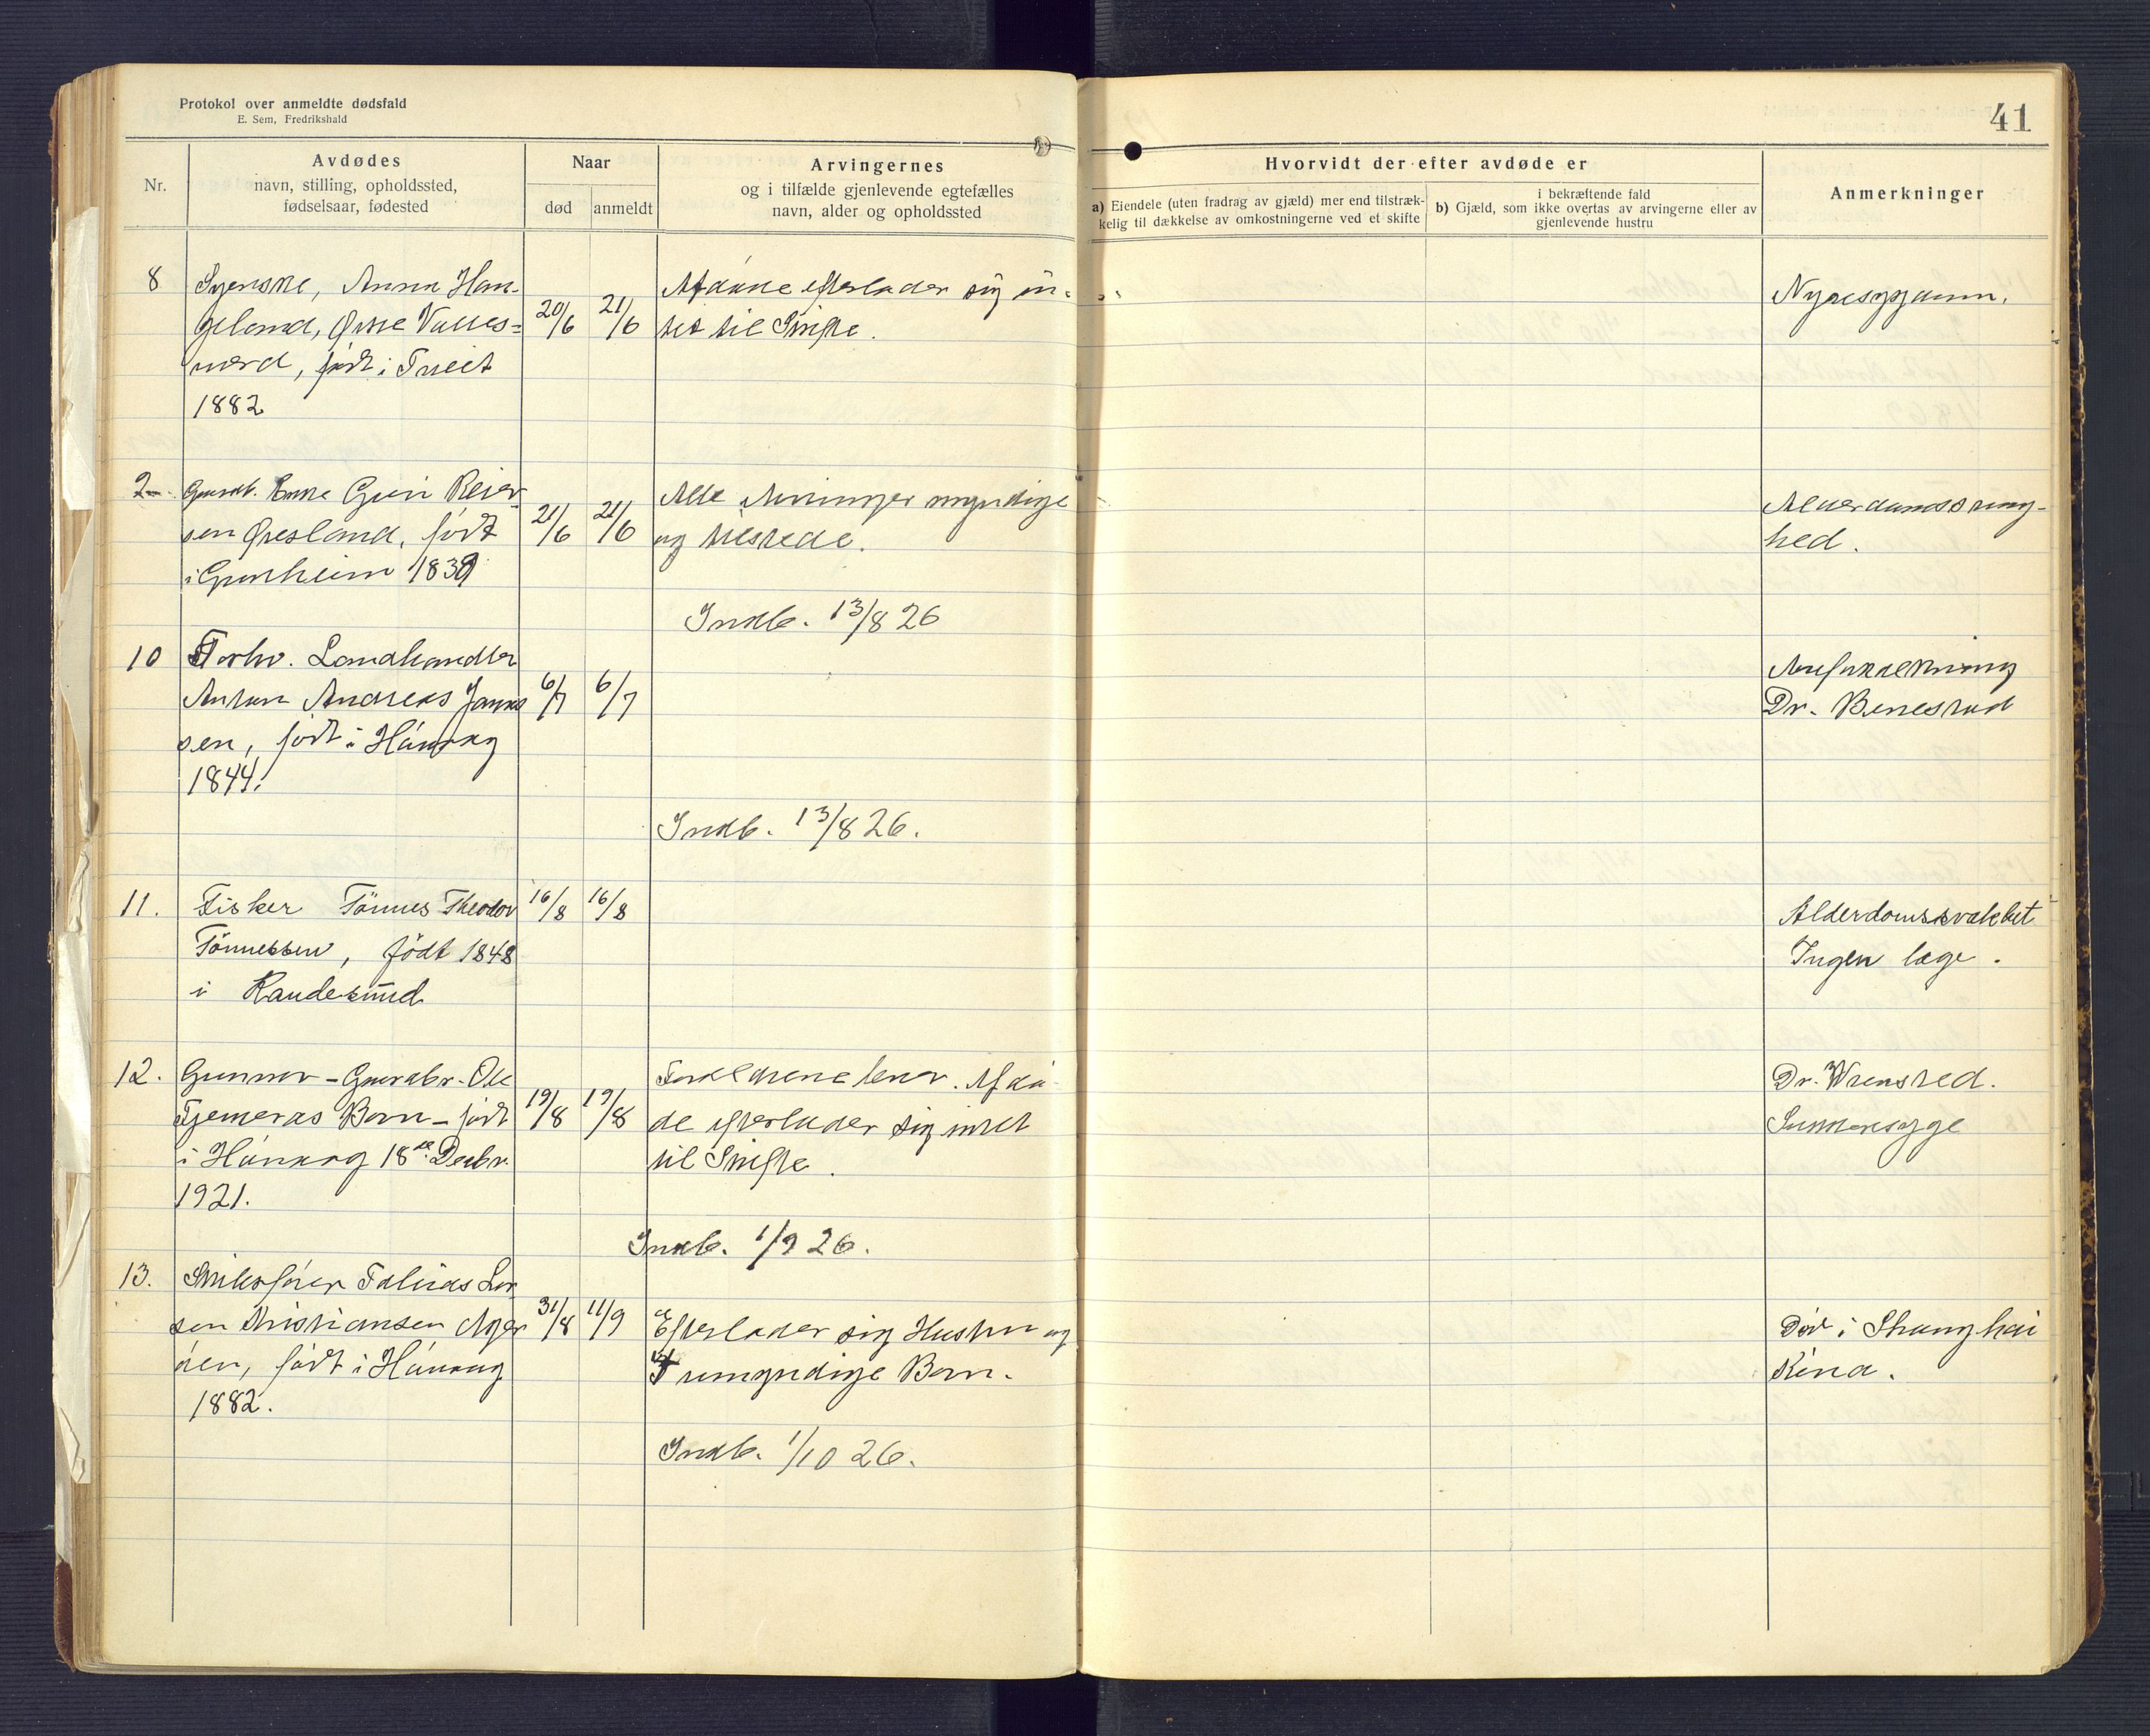 Protokol over anmeldte dødsfald
E. Sem, Fredrikshald
41
Nr.
Avdødes
navn, stilling, opholdssted,
fødselsaar, fødested
Naar
død
anmeldt
Arvingernes
og i tilfælde gjenlevende egtefælles
navn, alder og opholdssted
Hvorvidt der efter avdøde er
a) Eiendele (uten fradrag av gjæld) mer end tilstræk-
kelig til dækkelse av omkostningerne ved et skifte
i bekræftende fald
b) Gjæld, som ikke overtas av arvingerne eller av
gjenlevende hustru
Anmerkninger
8
Syerske, Anna Hau-
geland, Øvre Valles-
værd, født i Tveit
1882
20/6
21/6
Afdøde efterlader sig in-
tet til Skifte.
Nyresygdom.
Gaardb. Enke Guri Reier
sen Øresland, født
i Grenheim 1839
21/6
21/6
Alle Arvinger myndige
og tilstede.
Alderdomssvag-
hed.
Indb. 13/8 26
10
Forhv. Landhandler
Anton Andreas Jann
sen, født i Høvaag
1844.
6/7
6/7
Aareforkalkning
Dr. Benestad
Indb. 13/8 26.
11.
Fisker Tönnes Theodor
Tönnessen, födt 1848
i Randesund
16/8
16/8
Alderdomssvakhet
Ingen læge.
12.
Gunnar - Gaardbr. Ole
Tjemeraas Barn - født
i Høvaag 18de Decbr.
1921.
19/8
19/8
Forældrene lever. Afdø-
de efterlader sig intet
til Skifte.
Dr. Wrensted.
Sukkersyge
Indb. 1/9 26.
13.
Skibsfører Tobias Lar
sen Kristiansen Ager
øen, født i Høvaag
1882.
31/8
11/9
Efterlader sig Hustru og
umyndige Barn.
Død i Shanghai
Kina.
Indb. 1/10 26.